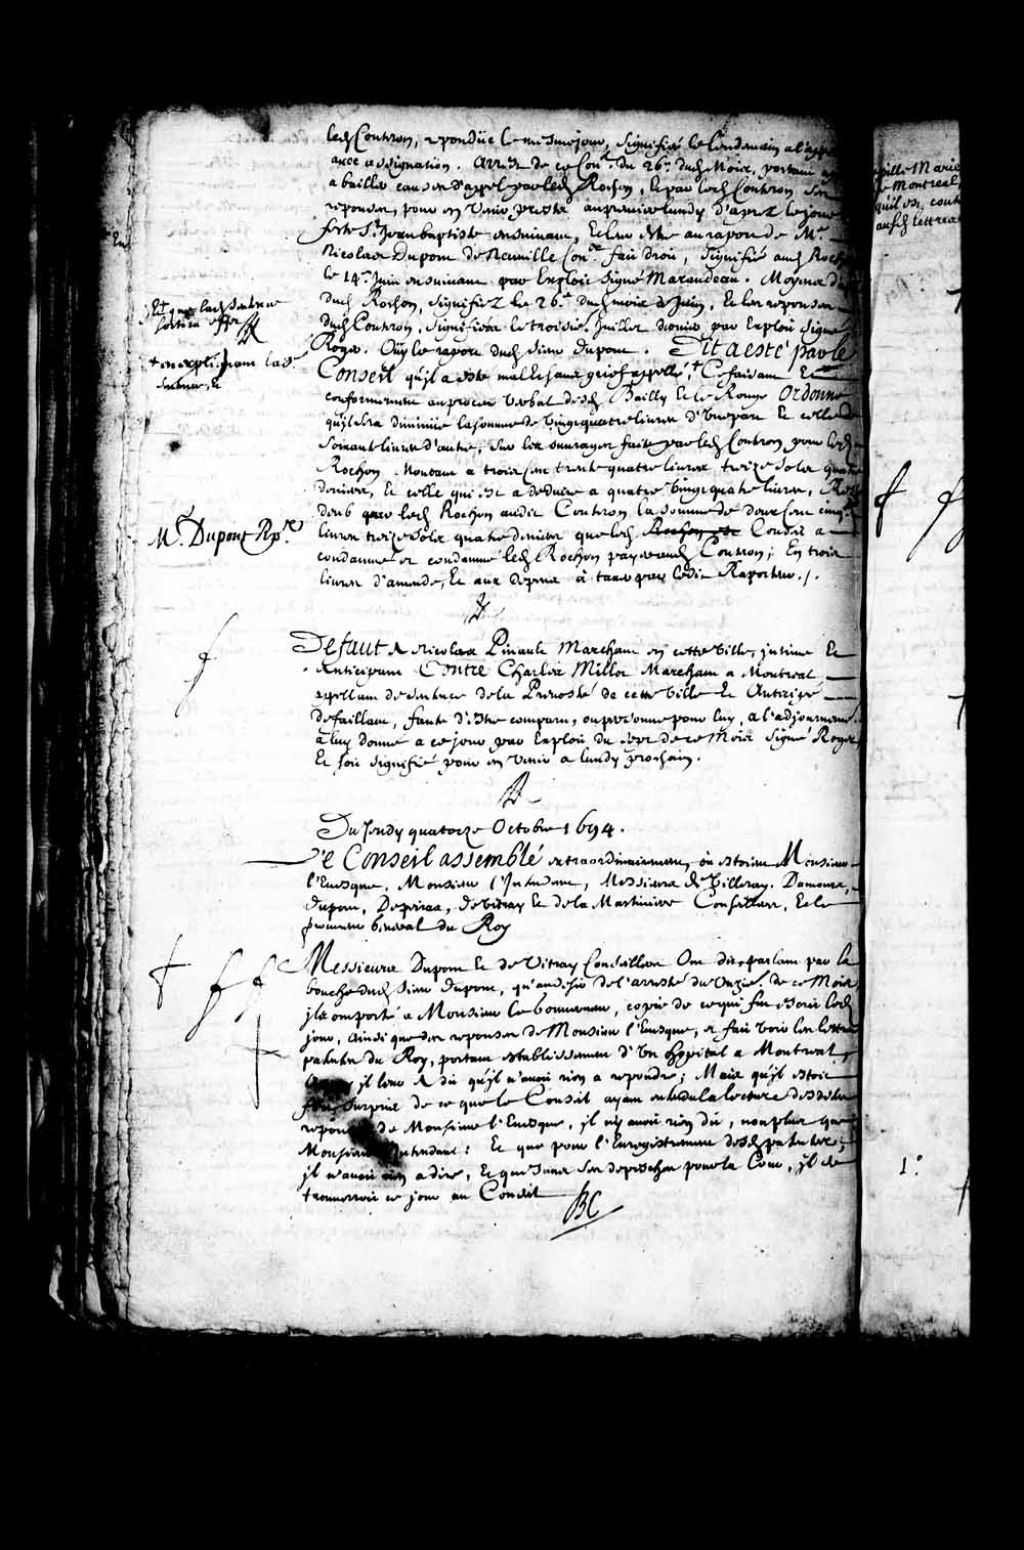 led. Contron, repondüe le mesme jour, signifié le lendemain
avec assignation. Arrest de ce Con.el du 26.e dud. Mois, portant
a bailler causes d'appel par led. Rochon, & par led. Contron
reponses, pour en Venir prests au premier lundy d'aprez le jour
feste S.t Jean baptiste ensuivant, & Estre mis au rapport de M.e
Nicolas Dupont de Neuville Con.er fait droit, signifié aud. Rochon
le 14.e Juin ensuivant par Exploit signé Marandeau. Moyens
dud. Rochon, signifiez le 26.e dud. mois de Juin, Et les reponses
dud. Contron, signifiées le troisie. Juillet dernier par Exploit signé
Roger. Oüy le raport dud. sieur Dupont. Dit a esté par le
Et que lad. sentence
sortira effet
Conseil qu'il a esté mal & sans grief appellé, + Ce faisant &
+ en expliquant lad.
sentence, &
conformement au procez Verbal desd. Bailly & le Rouge Ordonne
qu'il sera diminüé la somme de Vingt quatre livres d'Une part & celle de
soixante livres d'autre, sur les ouvrages faits par led. Contron pour led.
Rochon Montant a trois cent trente quatre livres treize sols quatre
deniers, & celle qui est a deduire a quatre Vingt quatre livres, Reste
deub par led. Rochon audit Contron la somme de deux cent cinq.te
M.e Dupont Rp.r
livres treize sols quatre deniers que led. Rochon est Conseil a
condamné et condamne led. Rochon payer aud. Contron; En trois
livres d'amende, & aux depens a taxer par ledit Raporteur./.
Defaut A Nicolas Pinault Marchant en cette Ville, intimé Et
Anticipant Contre Charles Millot Marchant a Montreal
appellant de sentence de la Prevosté de cette Ville Et Anticipé
defaillant, faute d'Estre comparu, ou personne pour luy, a l'adjournement
a luy donné a ce jour par Exploit du sept de ce Mois signé Roger
Et soit signifié pour en Venir a lundy prochain.
Du Jeudy quatorze Octobre 1694.
Le Conseil assemblé extraordinairement, où estoient Monsieur
l'Evesque, Monsieur l'Intendant, Messieurs de Villeray, Damours,
dupont, Depeiras, deVitray & de la Martiniere Conseillers, Et le
procureur general du Roy
Messieurs Dupont & de Vitray Conseillers Ont dit, parlant par la
bouche dud. sieur Dupont, qu'au desir de l'arresté du Unzie. de ce Mois
ils ont porté a Monsieur le Gouverneur, copie de ce qui fut escrit led.
jour, ainsi que des reponses de Monsieur l'Evesque, et fait Voir les lettres
patentes du Roy, portant establissement d'Un hopital a Montreal,
il leur A dit qu'il n'avoit rien a repondre; Mais qu'il estoit
fort surpris de ce que le Conseil ayant entendu la lecture desdites
reponses de Monsieur l'Evesque, il n'y avoit rien dit, non plus que
Monsieur l'Intendant: Et que pour l'Enregistrement desd. patentes,
il n'avoit rien a dire, Et que dans ses depesches pour la Cour, il se
trouverroit ce jour au Conseil
BC
ville Marie
de Montreal
qu'il est
ausd. lettres
1.°